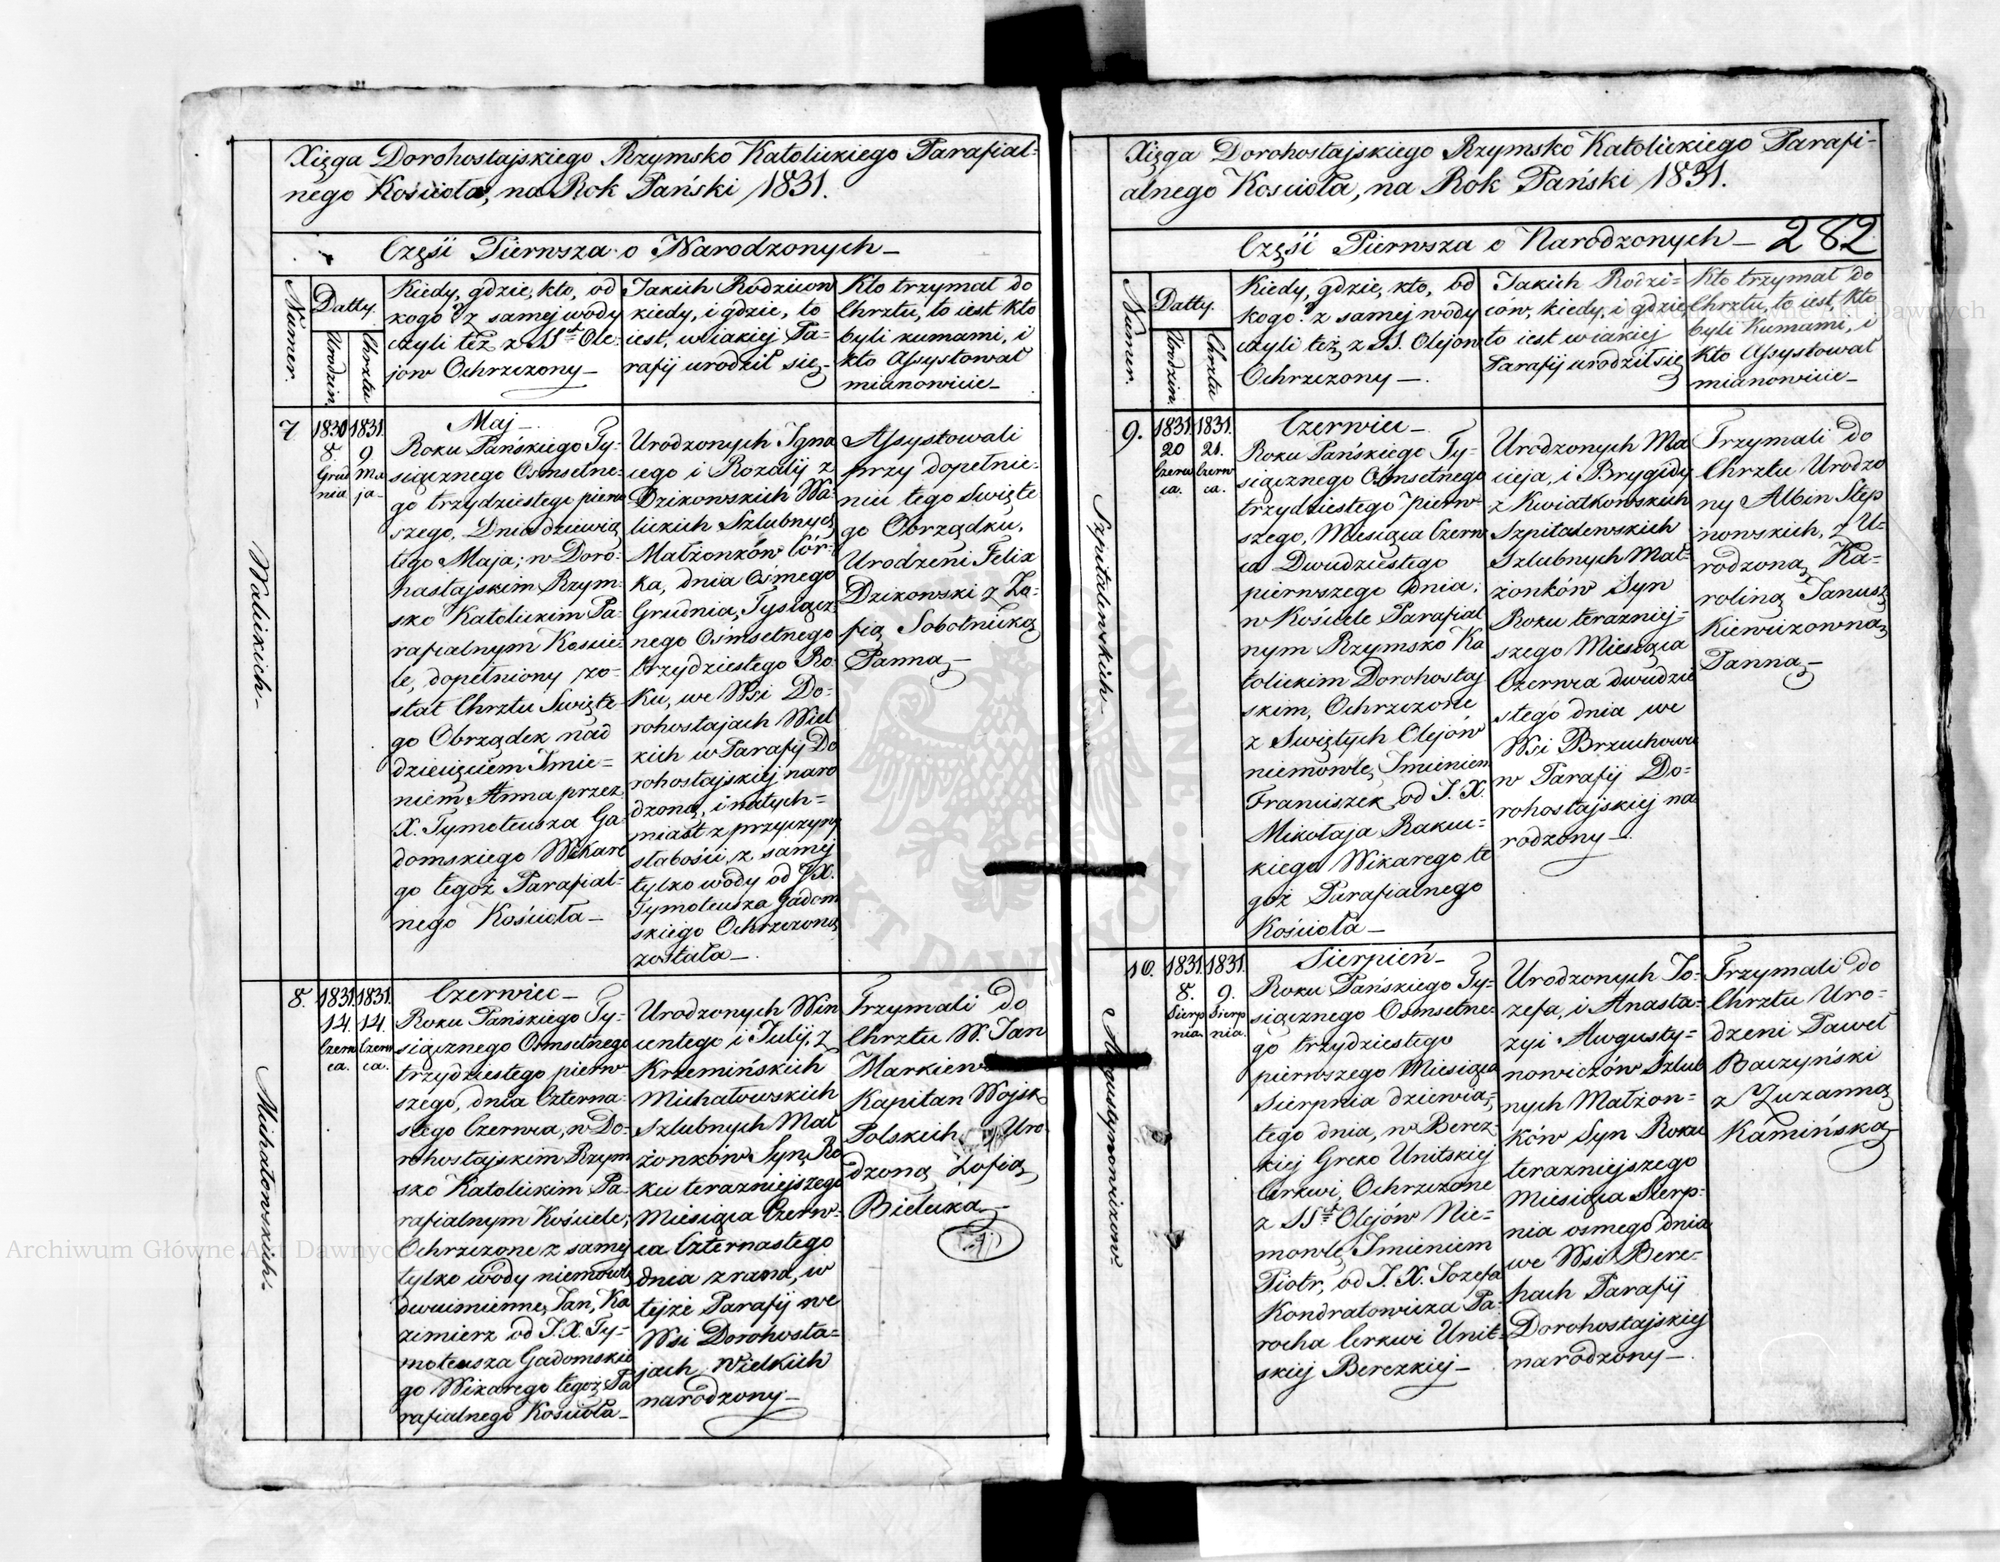 Xięga Dorohostajskiego Rzymsko Katolickiego Parafial-
nego Kościoła, na Rok Pański 1831.
Częśi Pierwsza o Narodzonych
Numer.
Datty.
Urodzin.
Chrztu
Kiedy, gdzie, kto, od
kogo? z samej wody
czyli też z SSt Ole-
jow Ochrzczony
Jakich Rodzicow
kiedy, i gdzie, to
iest, wiakiej Pa-
rafij urodził się
Kto trzymał do
Chrztu, to iest kto
byli kumami, i
kto Assystował
mianowicie
Walickich
7
1830
8.
Grud
nia
1831.
9
Ma
ja
Maj
Roku Pańskiego Ty-
siącznego Osmsetne-
go trzydziestego pierw
szego, Dnia dziewią
tego Maja; w Doro-
hastajskim Rzym-
sko Katolickim Pa-
rafialnym Koście-
le, dopełniony zo-
stał Chrztu Swięte-
go Obrządek nad
dziecięciem Imie-
niem Anna przez
X. Tymoteusza Ga-
domskiego Wikare
go tegoż Parafial-
nego Kościoła
Urodzonych Igna
cego i Rozalij z
Dzikowskich Wa-
lickich Szlubnych
Małżonków Cór-
ka, dnia Osmego
Grudnia, Tysiącz-
nego Ośmsetnego
trzydziestego Ro-
ku, we Wsi Do-
rohostajach Wiel
kich w Parafij Do
rohostajskiej naro
dzona, i natych-
miast z przyczyny
słabości, z samej
tylko wody od J.X.
Tymoteusza Gadom
skiego Ochrzczona
została
Assystowali
przy dopełnie-
niu tego Swięte
go Obrządku,
Urodzeni Felix
Dzikowski z Zo-
fią Sobotnicką
Panną
Michałowskich
8.
1831.
14.
Czerw
ca.
1831.
14.
Czerw
ca.
Czerwiec
Roku Pańskiego Ty-
siącznego Osmsetnego
trzydziestego pierw
szego, dnia Czterna-
stego Czerwca, w Do-
rohostajskim Rzym
sko Katolickim Pa-
rafialnym Kościele,
Ochrzczone z samej
tylko wody niemowle
dwuimienne, Jan, Ka
zimierz od J.X. Ty-
moteusza Gadomskie
go Wikarego tegoż Pa
rafialnego Kościoła
Urodzonych Win
centego i Julij, z
Krzemińskich
Michałowskich
Szlubnych Mał
żonków Syn, Ro
ku teraznieyszego
Miesiąca Czerw-
ca Czternastego
dnia z rana, w
tejże Parafij we
Wsi Dorohosta-
jach Wielkich
narodzony
Trzymali do
Chrztu W. Jan
Markiew
Kapitan Wojsk
Polskich Uro-
dzoną Zofią
Bielicką
Xięga Dorohostajskiego Rzymsko Katolickiego Parafi-
alnego Kościoła, na Rok Pański 1831.
Częśi Pierwsza o Narodzonych
282
Numer.
Datty.
Urodzin.
Chrztu
Kiedy, gdzie, kto, od
kogo? z samej wody
czyli też, z SS. Olejow
Ochrzczony
Jakich Rodzi-
ców, kiedy, i gdzie
to iest w iakiej
Parafij urodził się
Kto trzymał do
Chrztu, to iest, kto
byli Kumami, i
kto Assystował
mianowicie
Szpitalewskich
9.
1831.
20
Czerw
ca.
1831.
21.
Czerw
ca.
Czerwiec
Roku Pańskiego Ty-
siącznego Osmsetnego
trzydziestego pierw-
szego, Miesiąca Czerw
ca Dwudziestego
pierwszego dnia,
w Kościele Parafial
nym Rzymsko Ka
tolickim Dorohostaj
skim, Ochrzczone
z Swiętych Olejów
niemowle, Imieniem
Franciszek, od J. X.
Mikołaja Rakuc-
kiego Wikarego te
goż Parafialnego
Kościoła
Urodzonych Ma
cieja, i Brygidy
z Kwiatkowskich
Szpitalewskich
Szlubnych Mał-
żonków Syn
Roku teraznieij-
szego Miesiąca
Czerwca dwudzie
stego dnia we
Wsi Brzuchowie
w Parafij Do-
rohostajskiej na
rodzony
Trzymali do
Chrztu Urodzo
ny Albin Step
nowskich, z U-
rodzoną Ka-
roliną Janusz
kiewiczowną
Panną
Augustynowiczów
10.
1831.
8.
Sierp
nia.
1831.
9.
Sierp
nia.
Sierpień
Roku Pańskiego Ty-
siącznego Osmsetne-
go trzydziestego
pierwszego Miesiąca
Sierpnia dziewią-
tego dnia, w Berez-
kiej Greko Unitskiej
Cerkwi, Ochrzczone
z SSt Olejów Nie-
mowle, Imieniem
Piotr, od J. X. Jozefa
Kondratowicza Pa-
rocha Cerkwi Unit-
skiej Berezkiej
Urodzonych Jo-
zefa, i Anasta-
zyi Augusty-
nowiczów Szlub
nych Małżon-
ków Syn Roku
teraznieijszego
Miesiąca Sierp-
nia osmego dnia
we Wsi Bere-
hach Parafij
Dorohostajskiej
narodzony
Trzymali do
Chrztu Uro-
dzeni Paweł
Baczyński
z Zuzanną
Kamińską
Archiwum Główne Akt Dawnych